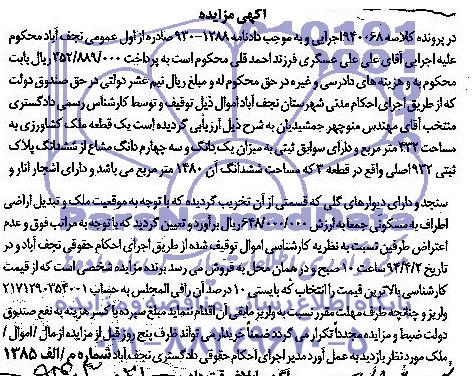 آگهی مزایده
در پرونده کلاسه ۹۴۰۰۶۸ اجرایی و به موجب دادنامه ۱۲۸۸-۹۳۰ صادره از اول عمومی نجف آباد محکوم
علیه اجرایی آقای علی علی عسگری فرزند احمد قلی محکوم است به پرداخت ۳۵۲/۸۸۹/۰۰۰ ریال بابت
محکوم به و هزینه های دادرسی و غیره در حق محکوم له و مبلغ ریال نیم عشر دولتی در حق صندوق دولت
که از طریق اجرای احکام مدنی شهرستان نجف آباد اموال ذیل توقیف و توسط کارشناس رسمی دادگستری
منتخب آقای مهندس منوچهر جمشیدیان به شرح ذیل ارزیابی گردیده است یک قطعه ملک کشاورزی به
مساحت ۴۳۲ متر مربع و دارای سوابق ثبتی به میزان یک دانگ و سه چهارم دانگ مشاع از ششدانگ پلاک
ثبتی ۹۳۲ اصلی واقع در قطعه ۳ که مساحت ششدانگ آن ۱۴۸۰ متر مربع می باشد و دارای اشجار انار و
سنجد و دارای دیوارهای گلی که قسمتی از آن تخریب گردیده که با توجه به موقعیت ملک و تبدیل اراضی
اطراف به مسکونی جمعا به ارزش ۶۴۸/۰۰۰/۰۰۰ ریال برآورد و تعیین گردید که با توجه به مراتب فوق و عدم
اعتراض طرفین نسبت به نظریه کارشناسی اموال توقیف شده از طریق اجرای احکام حقوقی نجف آباد و در
تاریخ ۹۴/۴/۲ ساعت ۱۰ صبح و در همان محل به فروش می رسد برنده مزایده شخصی است که از قیمت
کارشناسی بالاترین قیمت را انتخاب که بایستی ۱۰ درصد آن را فی المجلس به حساب
واریز و چنانچه ظرف مهلت مقرر نسبت به واریز مابقی آن اقدام ننماید مبلغ سپرده با کسر هزینه به نفع صندوق
دولت ضبط و مزایده مجددا تکرار می گردد ضمنا خریدار می تواند ظرف پنج روز قبل از مزایده از مال / اموال /
ملک مورد نظر بازدید به عمل آورد مدیر اجرای احکام حقوقی دادگستری نجف آباد شماره م / الف ۱۳۸۵